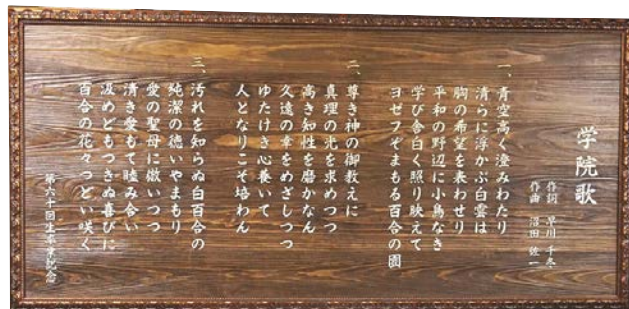 学院歌
作詞 早川 千冬
作曲 沼田 佐一
一、青空高く澄みわたり
清らに浮かぶ白雲は
胸の希望を表わせり
平和の野辺に小鳥なき
学び舎白く照り映えて
ヨゼフぞまもる百合の園
二、尊き神の御教えに
真理の光を求めつつ
高き知性を磨かなん
久遠の幸をめざしつつ
ゆたけき心養いて
人となりこそ培わん
三、汚れを知らぬ白百合の
純潔の徳いやまもり
愛の聖母に倣いつつ
清き愛もて睦み合い
汲めどもつきぬ喜びに
百合の花々つどい咲く
第六十回生卒業記念